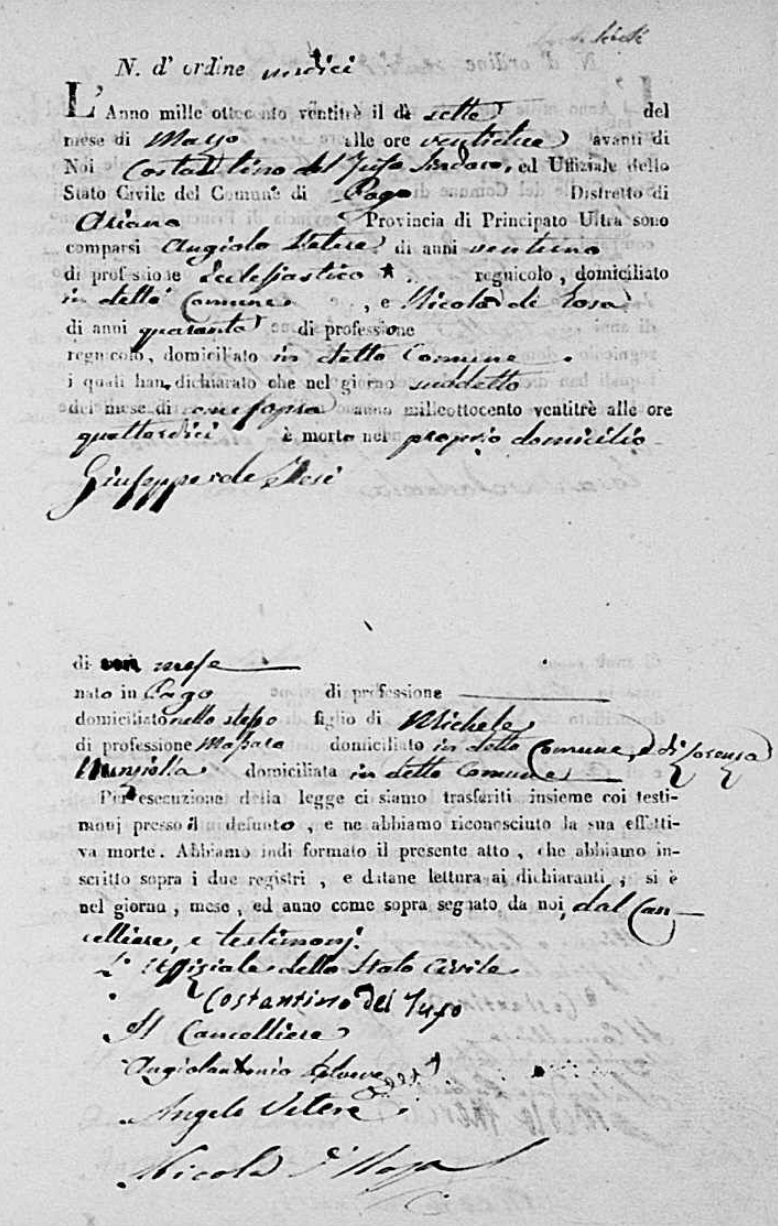 N. d' ordine undici
L' Anno mille ottocento ventitrè il dì sette del
mese di Marzo alle ore ventidue avanti di
Noi Costantino del Tufo Sindaco, ed Uffiziale dello
Stato Civile del Comune di Pago Distretto di
Ariano Provincia di Principato Ultra sono
comparsi Angiolo Vetere di anni ventuno
di professione Ecclesiastico regnicolo, domiciliato
in detto Comune, e Nicola di Rosa
di anni quaranta di professione
regnicolo, domiciliato in detto Comune
i quali han dichiarato che nel giorno suddetto
del mese di come sopra anno milleottocento ventitrè alle ore
quattordici è morto nel proprio domicilio
Giuseppe de
di un mese
nato in Pago di professione
domiciliato nello stesso figlio di Michele
di professione Massaro domiciliato in detto Comune, e di Lorenza
domiciliata in detto Comune
Per esecuzione della legge ci siamo trasferiti insieme coi testi-
monj presso il defunto, e ne abbiamo riconosciuto la sua effetti-
va morte. Abbiamo indi formato il presente atto, che abbiamo in-
scritto sopra i due registri, e datane lettura ai dichiaranti, si è
nel giorno, mese, ed anno come sopra segnato da noi, dal Can-
celliere, e testimonj.
L' Uffiziale dello Stato Civile
Costantino del Tufo
Il Cancelliere
Angiolantonio
Angelo Vetere
Nicola d' Rosa